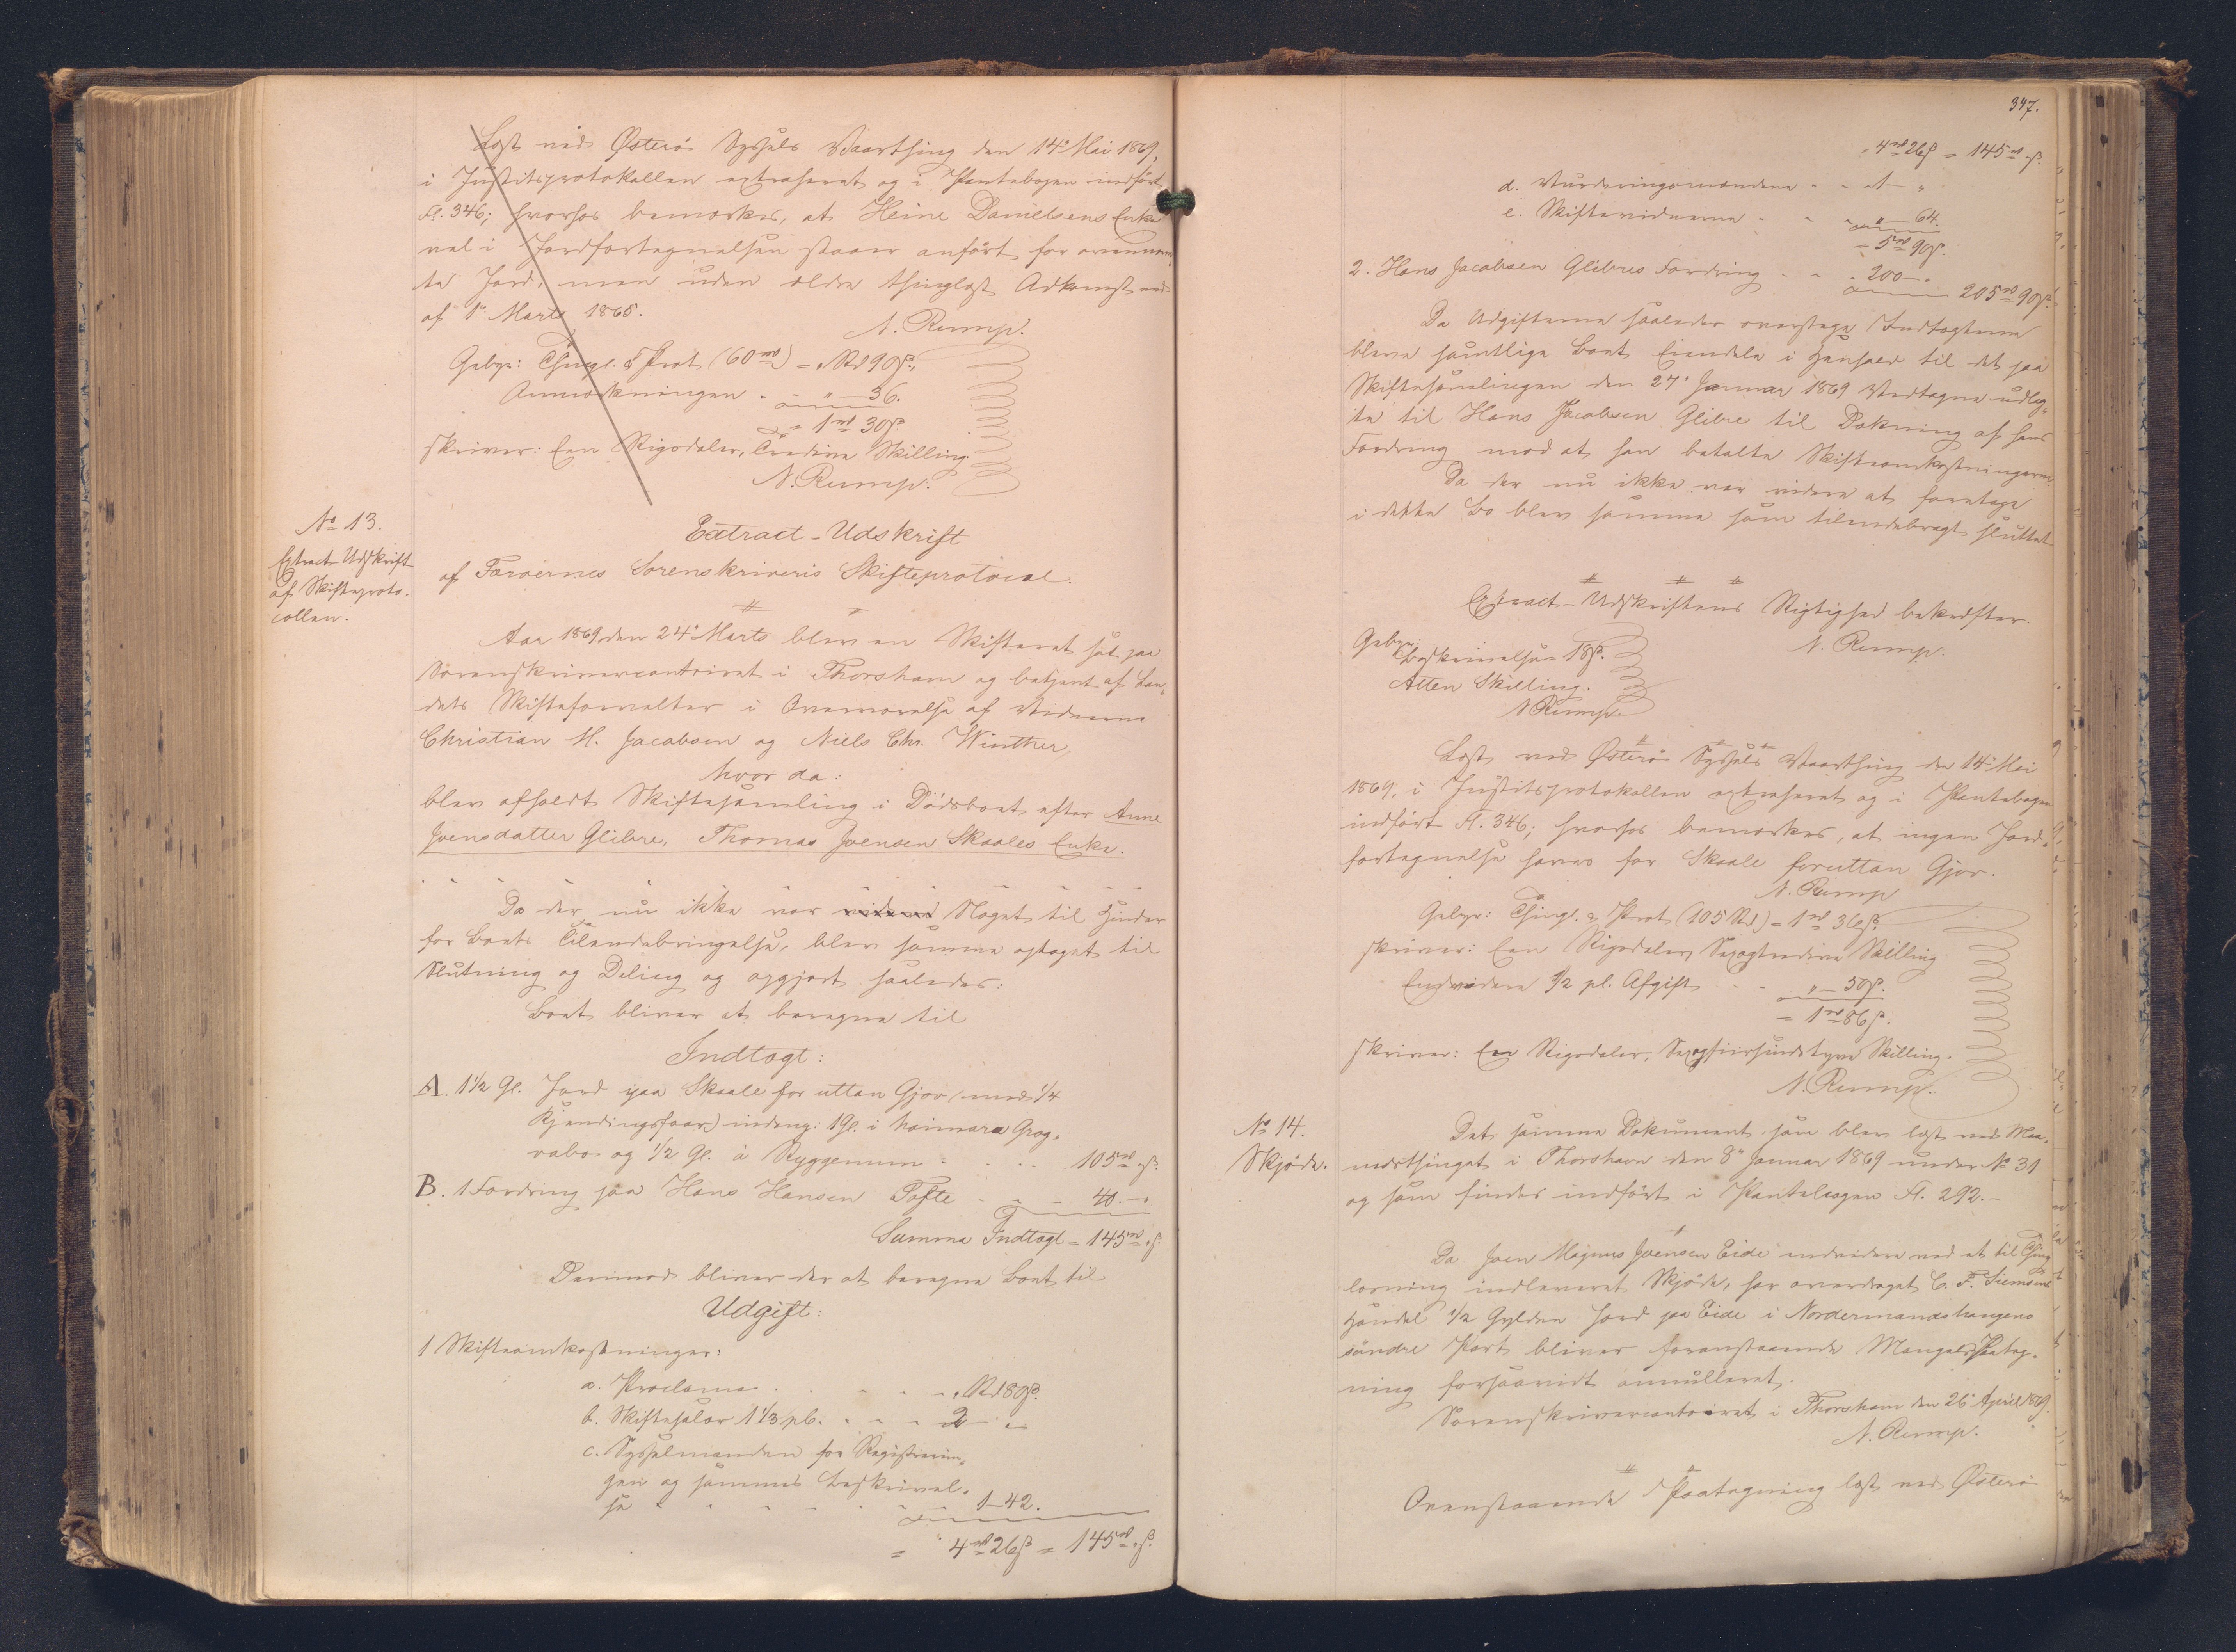 Læst ved Østerø Syssels Vaarthing den 14' Mai 1869,
i Justitsprotokollen extraheret og i Pantebogen indført
Fl. 346; hvorhos bemærkes, at Heine Danielsens Enke
vel i Jordfortegnelsen staaer anført for ovennævn-
te Jord, men uden ældre thinglæst Adkomst end
af 1' Marts 1865.
N. Rump.
Gebyr: Thingl. & Prot (60 rd) = " Rd 90 ß.
Anmærkningen - " - 36.
= 1 rd 30 ß.
skriver: Een Rigsdaler, Tredive Skilling.
N. Rump.
No 13.
Extract-Udskrift
af Skifteproto-
collen.
Extract-Udskrift
af Færøernes Sorenskriveris Skifteprotocol.
Aar 1869 den 24' Marts blev en Skifteret sat paa
Sorenskrivercontoiret i Thorshavn og betjent af Lan-
dets Skifteforvalter i Overværelse af Vidnerne
Christian M. Jacobsen og Niels Chr. Winther,
hvor da:
blev afholdt Skiftesamling i Dødsboet efter Anne
Joensdatter Glibre, Thomas Joensen Skaales Enke.
Da der nu ikke var videre Noget til Hinder
for Boets Tilendebringelse, blev samme optaget til
Slutning og Deling og opgjort saaledes:
Boet bliver at beregne til
Indtægt:
A. 1½ Gl. Jord paa Skaale for uttan Gjov (med ¼
Kjendingsfaar) inderg: 1 Gl. i heimara Grog-
vabo og ½ Gl. á Ryggenum - - - 105 rd " ß.
B. 1 Fordring paa Hans Hansen Tofte - - - 40. - "
Summa Indtægt = 145 rd " ß.
Derimod bliver der at beregne Boet til
Udgift:
1 Skifteomkostninger:
a. Proclama - - - - " Rd 80 ß.
b. Skiftesalær 1⅓ pC. - - - 2 - "
c. Sysselmanden for Registrerin-
gen og sammes Beskrivel-
se - - - - - - 1 - 42.
= 4 rd 26 ß = 145 rd " ß.
347.
4 rd 26 ß = 145 rd " ß.
d. Vurderingsmændene - - 1 - "
e. Skiftevidnerne - - - " - 64.
= 5 rd 90 ß.
2. Hans Jacobsen Glibres Fordring - - - 200 - "
205 rd 90 ß.
Da Udgifterne saaledes overstege Indtægterne
bleve samtlige Boets Eiendele i Henhold til det paa
Skiftesamlingen den 27' Januar 1869 Vedtagne udlag-
te til Hans Jacobsen Glibre til Dækning af hans
Fordring mod at han betalte Skifteomkostningerne.
Da der nu ikke var videre at foretage
i dette Bo blev samme som tilendebragt sluttet
Extract-Udskriftens Rigtighed bekræfter.
N. Rump.
Gebyr:
Beskrivelse 18 ß.
Atten Skilling.
N Rump.
Læst ved Østerø Syssels Vaarthing den 14' Mai
1869, i Justitsprotokollen extraheret og i Pantebogen
indført Fl. 346; hvorhos bemærkes, at ingen Jord-
fortegnelse haves for Skaale foruttan Gjov.
N. Rump
Gebyr: Thingl. & Prot (105 Rd) = 1 rd 36 ß.
skriver: Een Rigsdaler, Sexogtredive Skilling
Endvidere ½ pC. Afgift - - " - 50 ß.
= 1 rd 86 ß.
skriver: Een Rigsdaler, Sexogfiirsindstyve Skilling.
N. Rump.
No 14.
Skjøde.
Det samme Dokument som blev læst ved Maa-
nedsthinget i Thorshavn den 8' Januar 1869 under No 31
og som findes indført i Pantebogen Fl. 292. -
Da Joen Magnus Joensen Eide endvidere ved et til Thing-
læsning indleveret Skjøde, har overdraget C. F. Siemsens
Handel ½ Gylden Jord paa Eide i Nordermandshaugens
søndre Part bliver foranstaaende Mangelspaateg-
ning forsaavidt annulleret.
Sorenskrivercontoiret i Thorshavn den 26' April 1869.
N. Rump.
Ovenstaaende Paategning læst ved Østerø